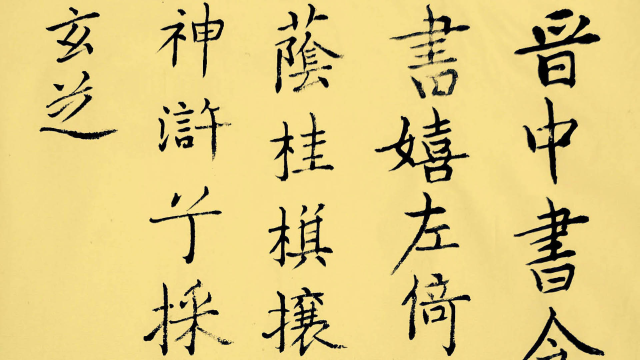 晉中書令
書嬉左倚
蔭桂旗攘
神滸兮採
玄芝